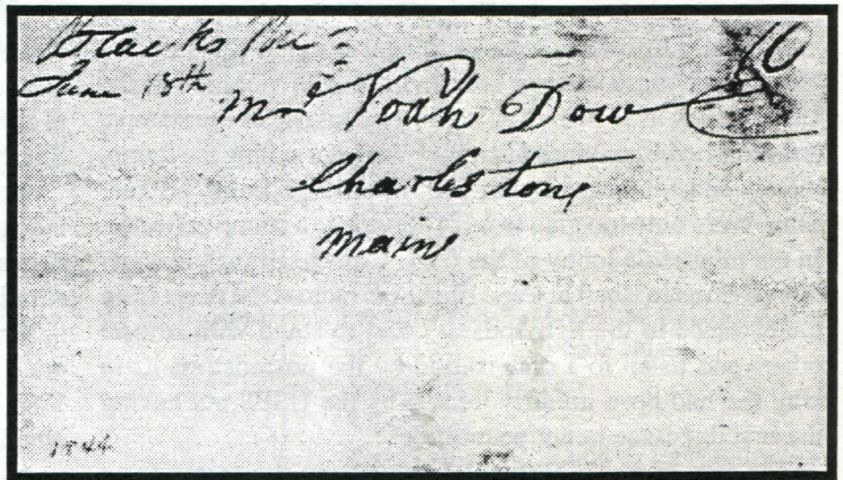 Blacks Me
10
June 13th
Mr Noah Dow
Charlestone
Maine
1844